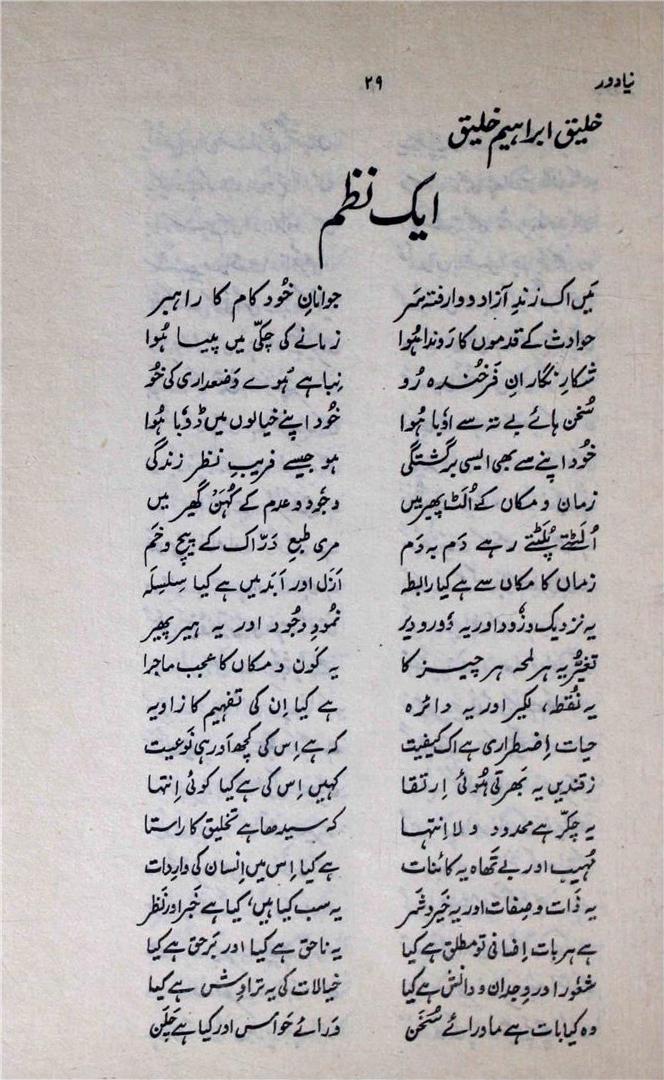 نیادور
۲۹
خلیق ابراہیم خلیق
ایک نظم
مَیں اک رَندِ آزاد و وارفتہ سَر جوانانِ خُود کام کا راہبر
حوادث کے قدموں کا رَوندا ہُوا زمانے کی چکّی میں پیسا ہُوا
شکارِ نگارانِ فَرخُندہ رُو نِباہے ہُوے وَضعداری کی خُو
سُخن ہائے بے تہ سے اُوبا ہُوا خُود اپنے خیالوں میں ڈوبا ہُوا
خُود اپنے سے بھی ایسی برگشتگی ہو جیسے فریبِ نظر زندگی
زمان و مکاں کے اُلٹ پھیر میں وجُود و عدم کے کُہَن گھیر میں
اُلَٹتے پَلَٹتے رہے دَم بہ دَم مری طبعِ دَرّاک کے پیچ و خَم
زماں کا مکاں سے ہے کیا رابطہ اَزَل اور اَبَد میں ہے کیا سِلسِلَہ
یہ نزدیک و زُود اور یہ دُور و دیر نُمودِ وجُود اور یہ ہیر پھیر
تغیّر یہ ہر لمحہ ہر چیز کا یہ کَون و مکاں کا عجب ماجرا
یہ نُقطہ، لکیر اور یہ دائرہ ہے کیا اِن کی تفہیم کا زاویہ
حیات اِضطراری ہے اک کیفیت کہ ہے اِس کی کچھ اَور ہی نَوعیت
زقندیں یہ بَھرتی ہُوئی اِرتقا کہیں اِس کی ہے کیا کوئی اِنتہا
یہ چکّر ہے محدود و لااِنتہا کہ سیدھا ہے تخلیق کا راستا
مُہیب اور بے تَھاہ یہ کائنات ہے کیا اِس میں اِنسان کی واردات
یہ ذَات و صِفات اور یہ خَیر و شَر یہ سب کیا ہیں، کیا ہے خَبر اور نَظر
ہے ہر بات اِضافی تو مطلق ہے کیا یہ ناحق ہے کیا اور بَرحَق ہے کیا
شعُور اور وِجدان و دانِش ہے کیا خیالات کی یہ تراوِش ہے کیا
وہ کیا بات ہے ماورائے سُخَن وَرائے حَواس اور کیا ہے چَلَن